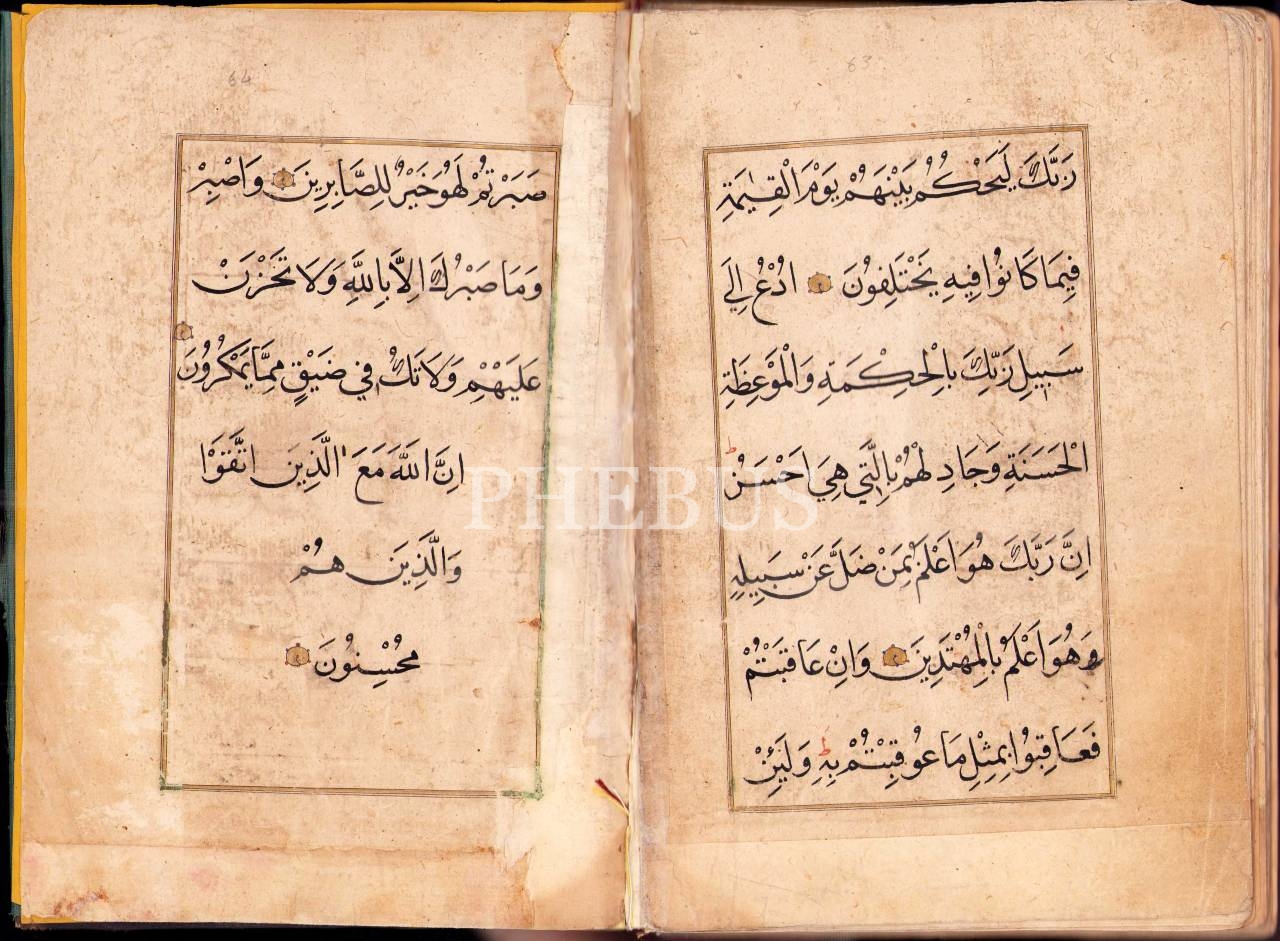 63
رَبَّكَ لَيَحْكُمُ بَيْنَهُمْ يَوْمَ الْقِيٰمَةِ
فِيمَا كَانُوا فِيهِ يَخْتَلِفُونَ ادْعُ اِلَى
سَبِيلِ رَبِّكَ بِالْحِكْمَةِ وَالْمَوْعِظَةِ
الْحَسَنَةِ وَجَادِلْهُمْ بِالَّتِي هِيَ اَحْسَنُ ط
اِنَّ رَبَّكَ هُوَ اَعْلَمُ بِمَنْ ضَلَّ عَنْ سَبِيلِهِ
وَهُوَ اَعْلَمُ بِالْمُهْتَدِينَ وَاِنْ عَاقَبْتُمْ
فَعَاقِبُوا بِمِثْلِ مَا عُوقِبْتُمْ بِهِ ط وَلَئِنْ
64
صَبَرْتُمْ لَهُوَ خَيْرٌ لِلصَّابِرِينَ وَاصْبِرْ
وَمَا صَبْرُكَ اِلَّا بِاللَّهِ وَلَا تَحْزَنْ
عَلَيْهِمْ وَلَا تَكُ فِي ضَيْقٍ مِمَّا يَمْكُرُونَ
اِنَّ اللَّهَ مَعَ الَّذِينَ اتَّقَوْا
وَالَّذِينَ هُمْ
مُحْسِنُونَ
PHEBUS